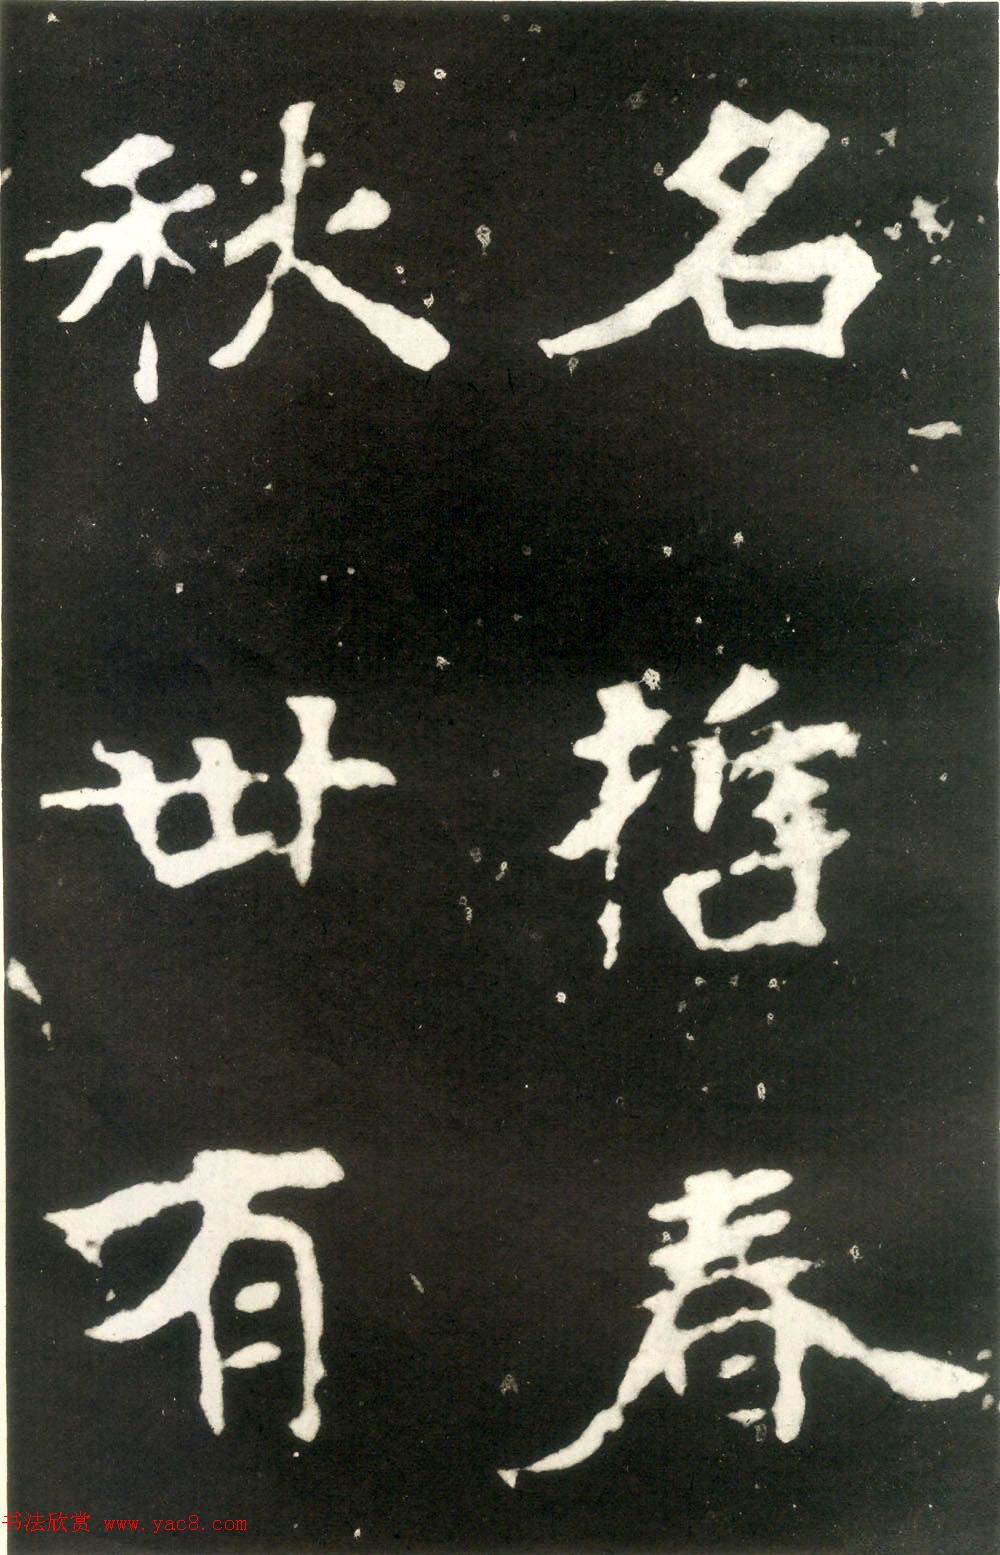 名哲春
秋世有
书法欣赏 www.yac8.com